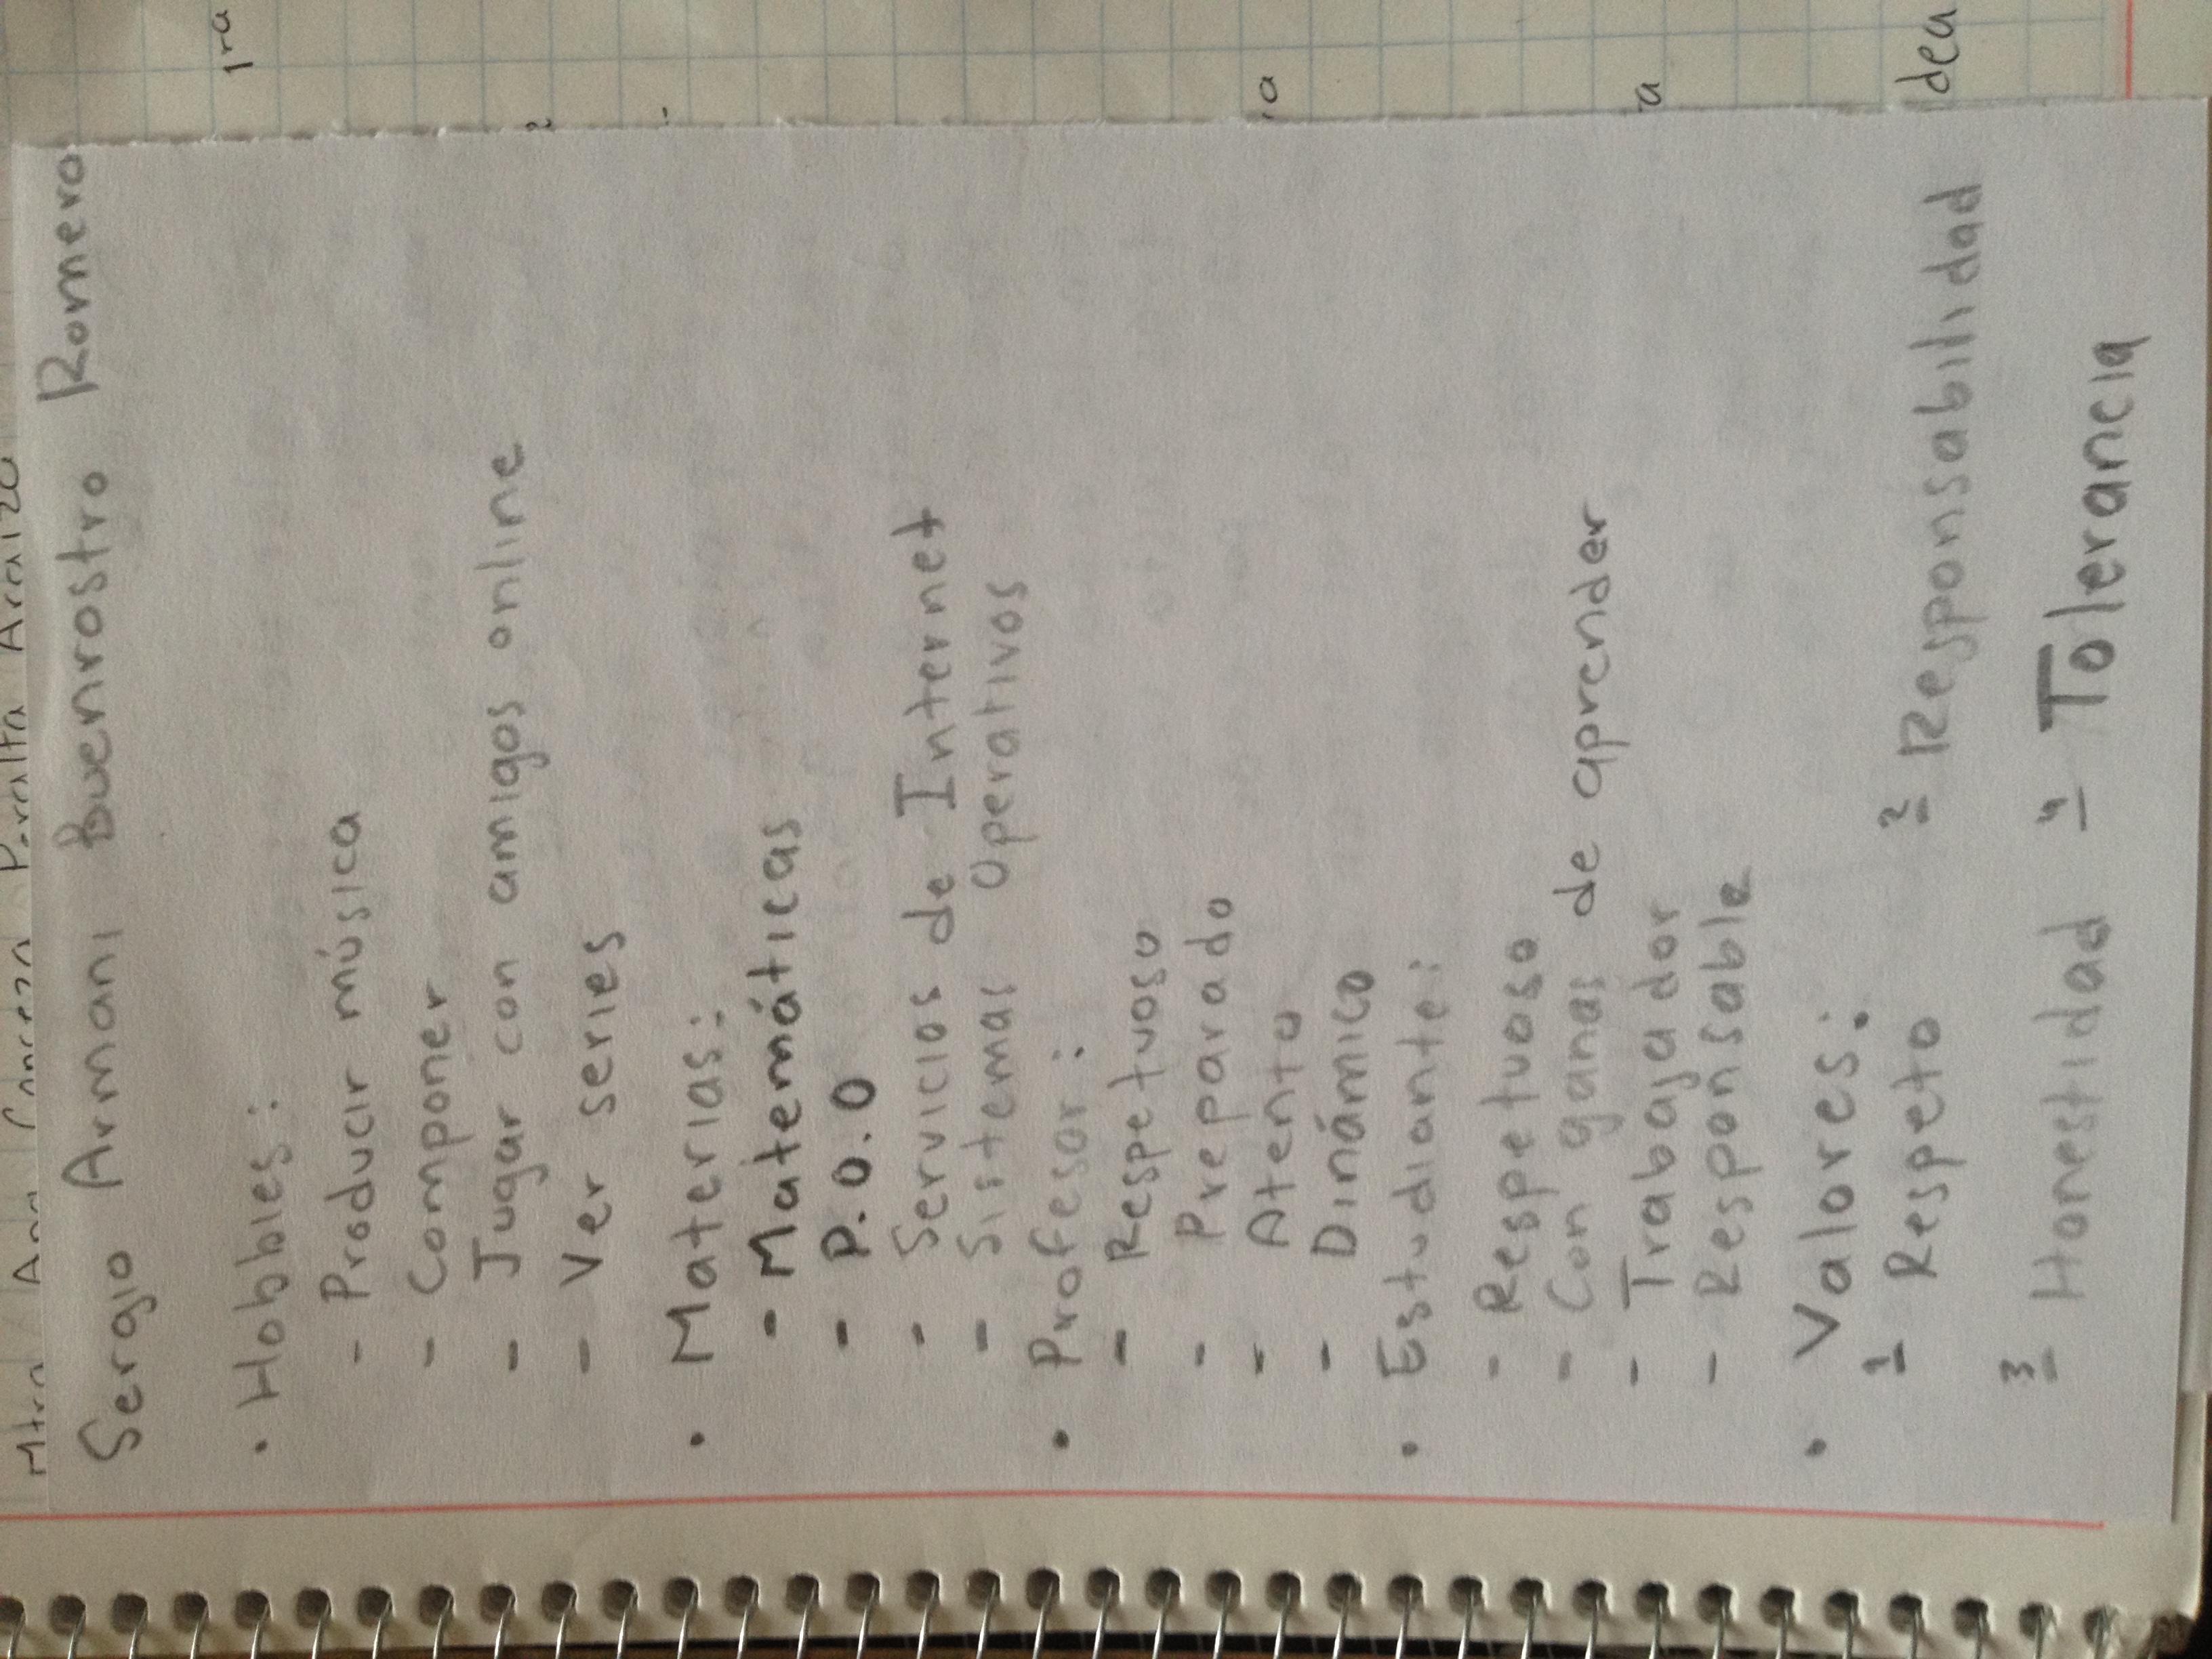 Mtra Ana
Sergio Armani Buenrostro Romero
• Hobbies:
- Producir música
- Componer
- Jugar con amigos online
- Ver series
• Materias:
- Matemáticas
- P.O.O
- Servicios de Internet
- Sistemas Operativos
• Profesor:
- Respetuoso
- Preparado
- Atento
- Dinámico
• Estudiante:
- Respetuoso
- Con ganas de aprender
- Trabajador
- Responsable
• Valores:
1 Respeto 2 Responsabilidad
3 Honestidad 4 Tolerancia
1ra
a
a
dea